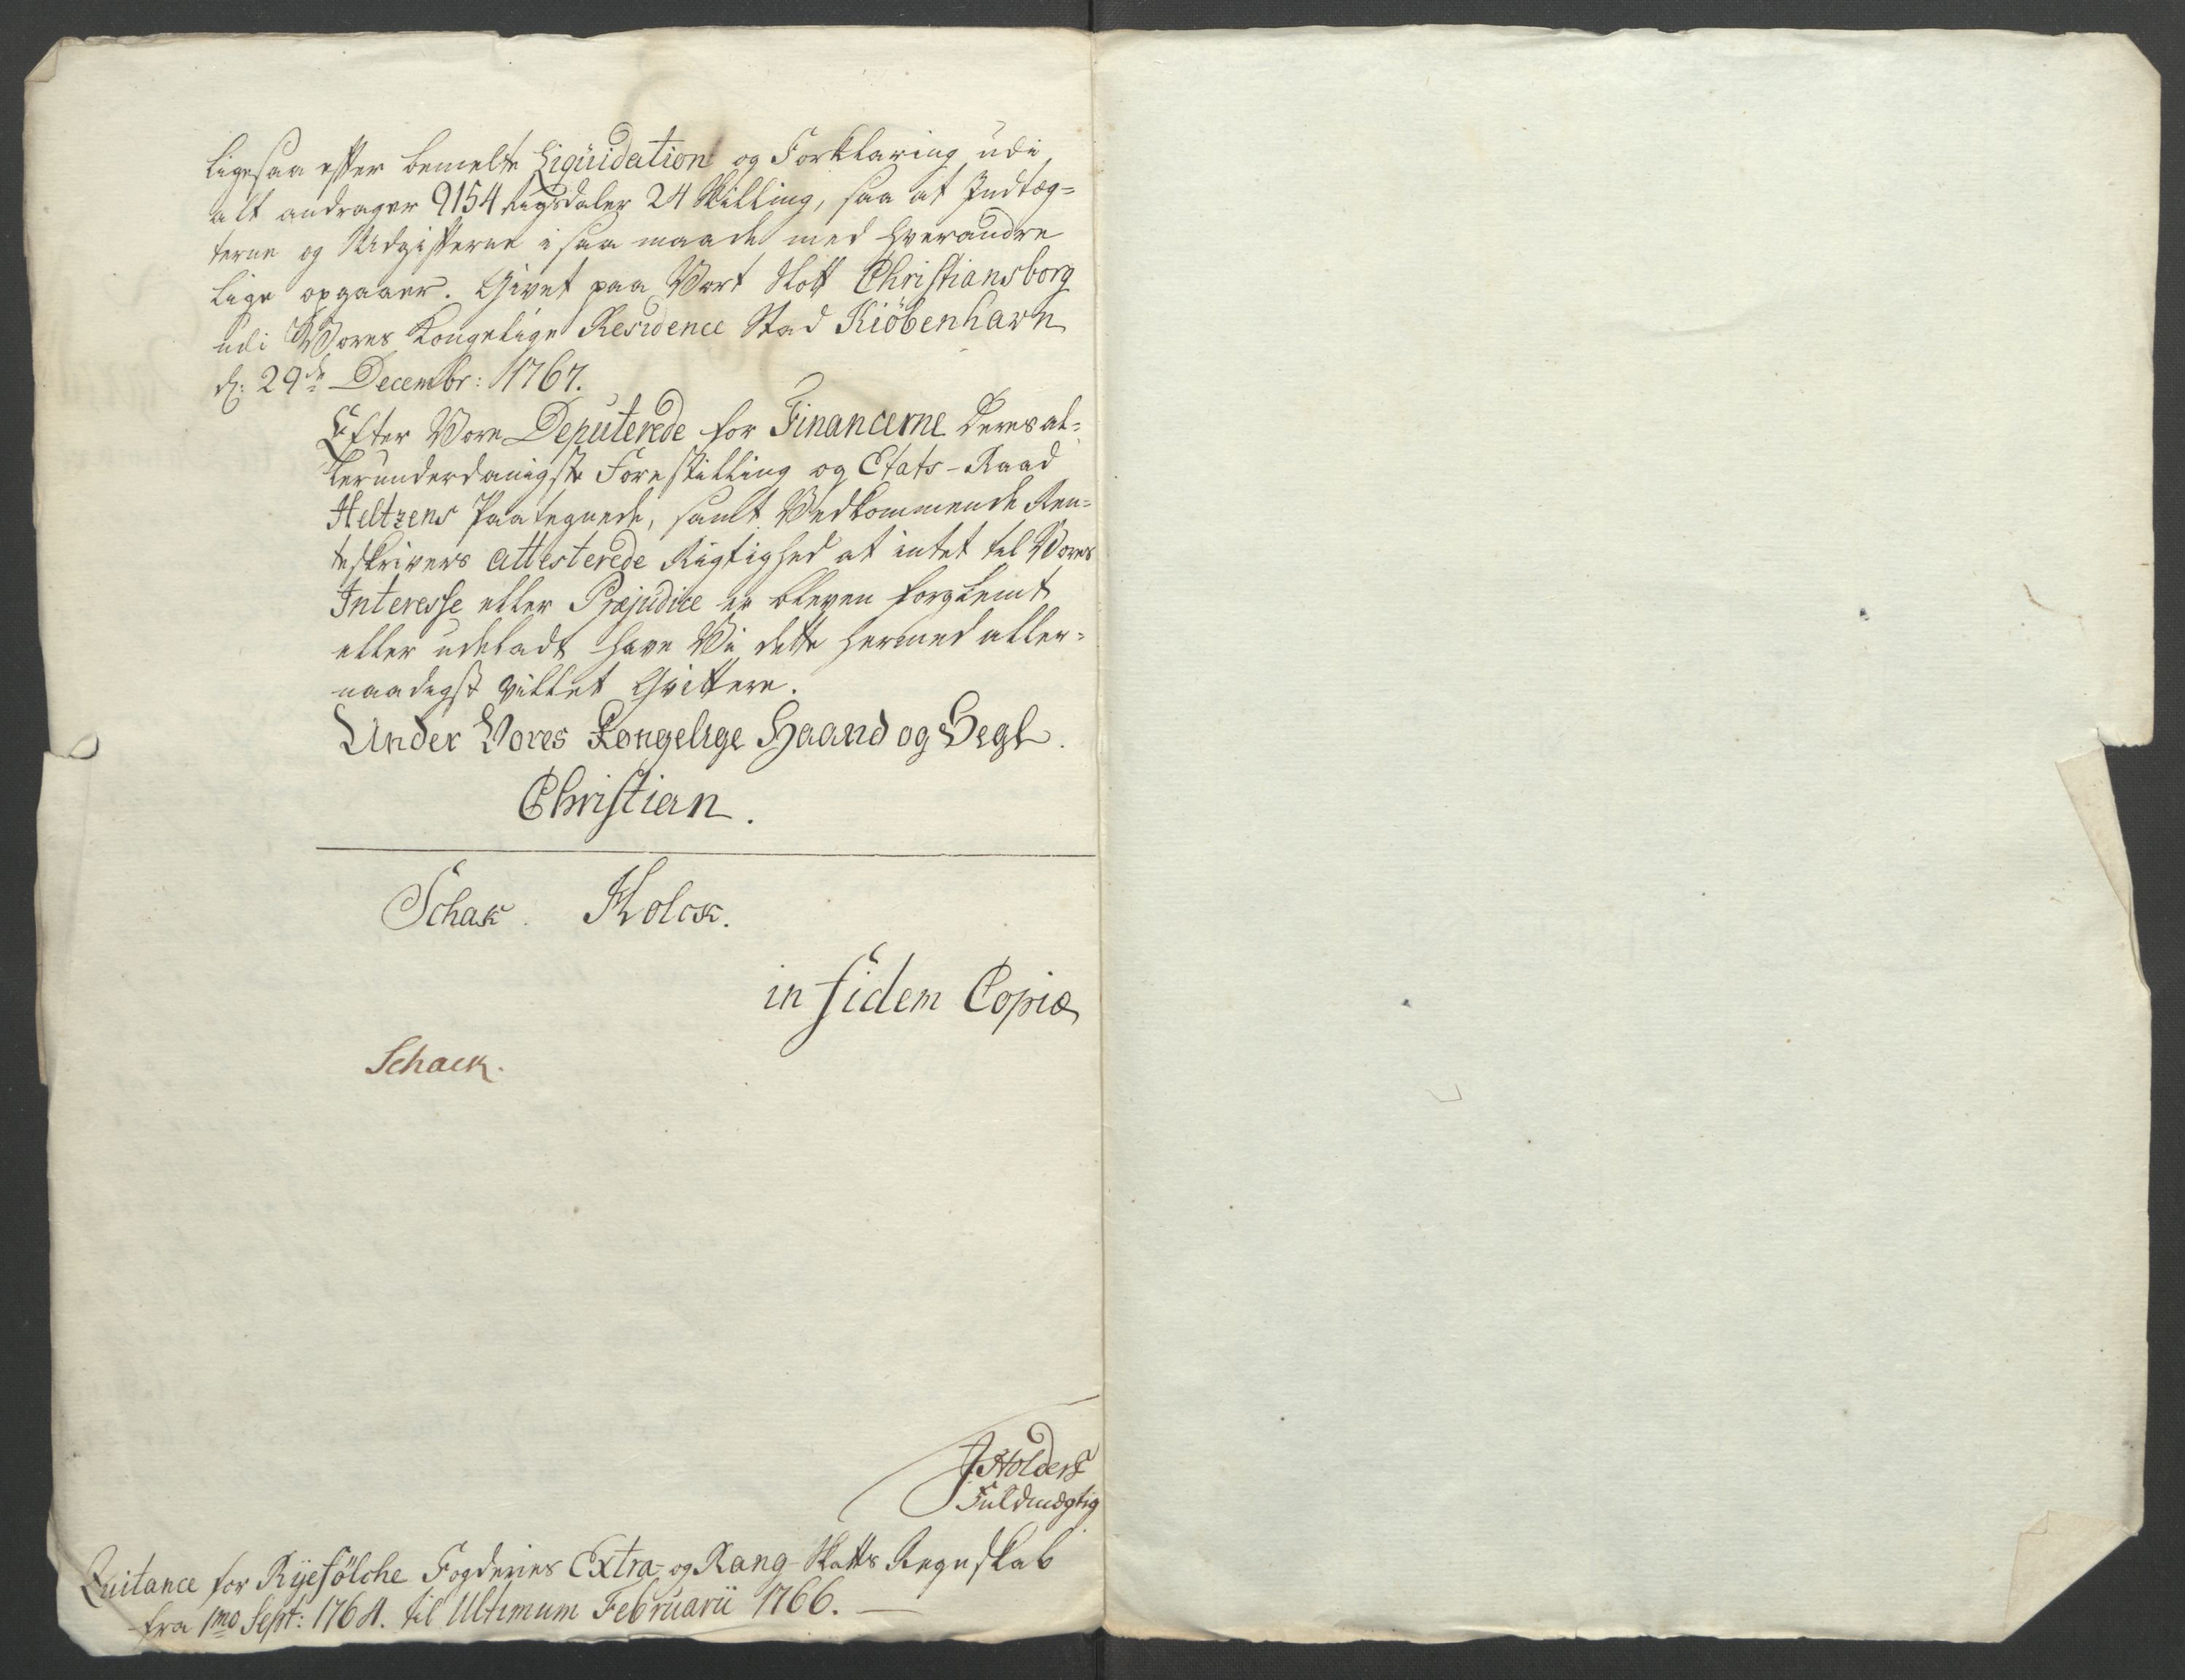 ligesaa efter bemelte Liqüidation og Forklaring udi
alt andrager 9154 rigsdaler 24 Skilling, saa at Indtæg=
terne og Udgifterne i saa maade med hverandre
lige opgaaer. Givet paa Vort Slott Christiansborg
udi Vores Kongelige Residence Stad Kiöbenhavn
d: 29de Decembr: 1767.
Efter Vore Deputerede for Financerne Deres al=
lerunderdanigste Forestilling og Etats-Raad
Heltzens Paategnede, samt Vedkommende Ren=
teskrivers attesterede Rigtighed at intet til Vores
Interesse eller Præjudice er bleven forglemt
eller udeladt have Vi dette hermed aller=
naadigst villet Qvittere.
Under Vores Kongelige Haand og Segl.
Christian.
Schak. Holck.
in fidem Copiæ
Schack.
J Holderf
Fuldmægtig
Quitance for Ryefölche Fogderies Extra- og Rang-Skatts Regnskab
fra 1mo Sept: 1764. til Ultimum Februarii 1766.